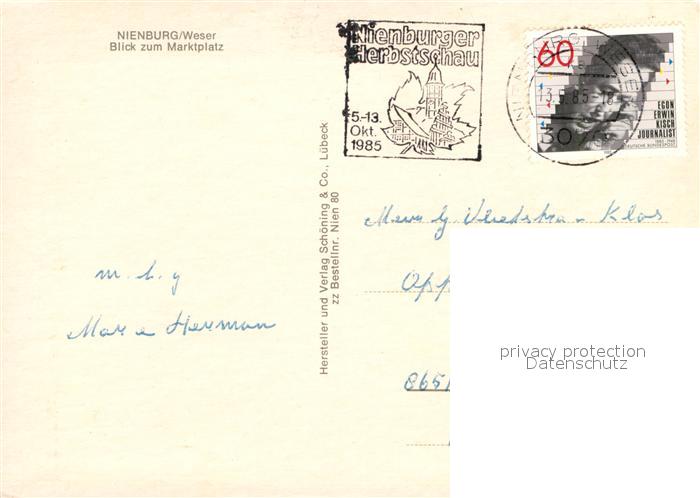 NIENBURG/Weser
Blick zum Marktplatz
Nienburger
Herbstschau
5.-13.
Okt.
1985
60
EGON
ERWIN
KISCH
JOURNALIST
1885-1948
DEUTSCHE BUNDESPOST
Hersteller und Verlag Schöning & Co., Lübeck
zz Bestellnr. Nien 80
Klos
Opp
m. l. g
Mar e Herman
8651
privacy protection
Datenschutz